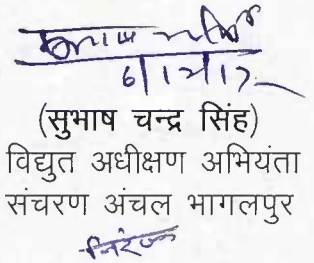 6/12/17
(सुभाष चन्द्र सिंह)
विद्युत अधीक्षण अभियंता
संचरण अंचल भागलपुर